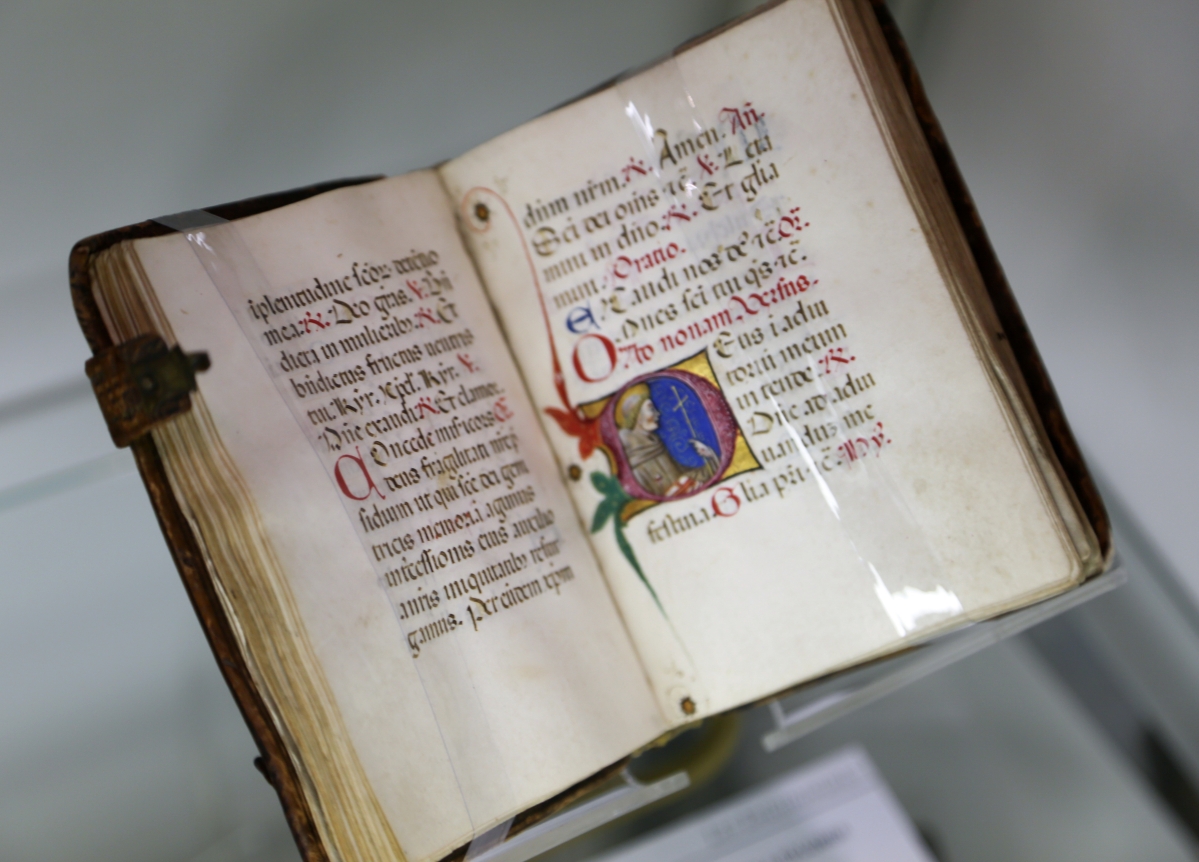 iplenitudine scōꝝ detētio
mea. ℟. Deo gras. ℣. Bn̄
dicta in mulierib₉. ℟. Et
bn̄dictus fructus uentris
tui. Kyr. Xpē. Kyr. ℣.
Dn̄e exaudi. ℟. Et clamor.
Concede misēricors
deus fragilitati
sidium ut qui scē dei geni
tricis memoria agimus
intcessionis eius auxilio
a nr̄is iniquitatib₉ resur
gamus. Per eūdem xp̄m
dn̄m nr̄m. ℟. Amen. An̄.
Sci dei oms ⁊c̄. ℣. Leta
mini in dn̄o. ℟. Et glia
mini. Oratio.
Exaudi nos de⁹ ⁊c̄. Or.
Om̄nes sci tui qs ⁊c̄.
Ad nonam. Versus.
Deus i adiu
toriū meum
intende. ℟.
Dn̄e ad adiu
uandūz me
festina. Glia pr̄i. ⁊c̄. Hy̅.